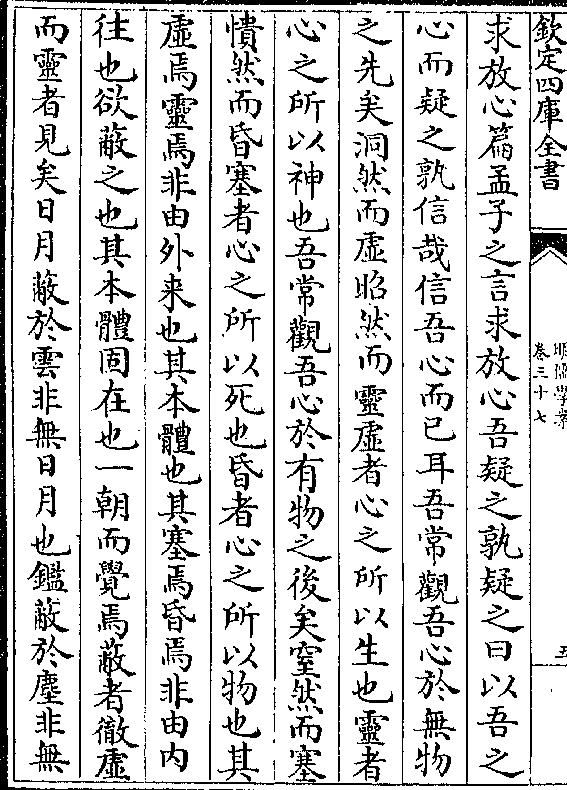 欽定四庫全書
明儒學案
卷三十七
五
求放心篇孟子之言求放心吾疑之孰疑之曰以吾之
心而疑之孰信哉信吾心而已耳吾常觀吾心於無物
之先矣洞然而虛昭然而靈虛者心之所以生也靈者
心之所以神也吾常觀吾心於有物之後矣窒然而塞
憒然而昏塞者心之所以死也昏者心之所以物也其
虛焉靈焉非由外来也其本體也其塞焉昏焉非由内
往也欲蔽之也其本體固在也一朝而覺焉蔽者徹虛
而靈者見矣日月蔽於雲非無日月也鑑蔽於塵非無